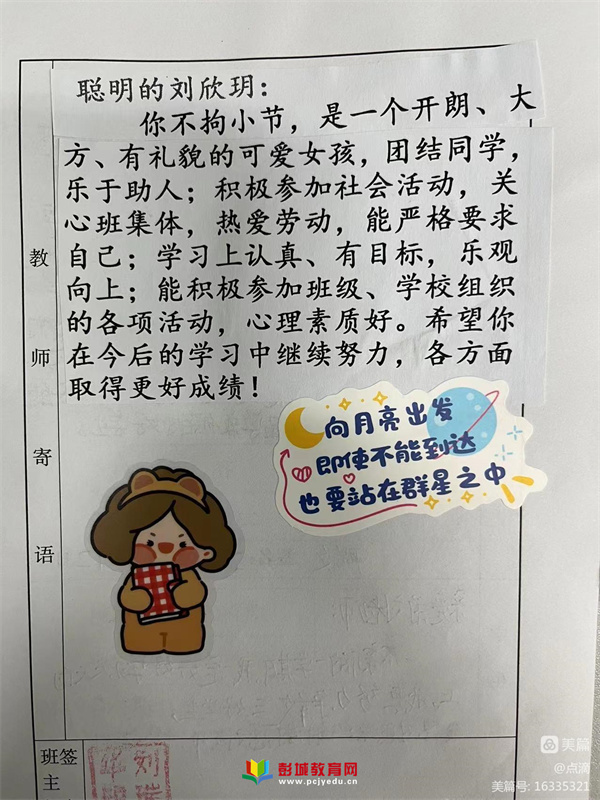 聪明的刘欣玥：
你不拘小节，是一个开朗、大
方、有礼貌的可爱女孩，团结同学，
乐于助人；积极参加社会活动，关
心班集体，热爱劳动，能严格要求
自己；学习上认真、有目标，乐观
向上；能积极参加班级、学校组织
的各项活动，心理素质好。希望你
在今后的学习中继续努力，各方面
取得更好成绩！
教
师
寄
语
向月亮出发
即使不能到达
也要站在群星之中
班签
主
彭城教育网
www.pcjyedu.cn
美篇
@点滴
美篇号: 16335321